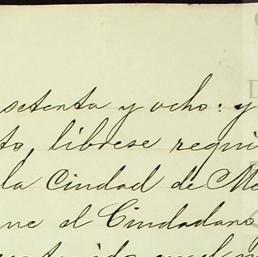 setenta y ocho: y
to, librese requi
la Ciudad de Me
ne el Ciudadano